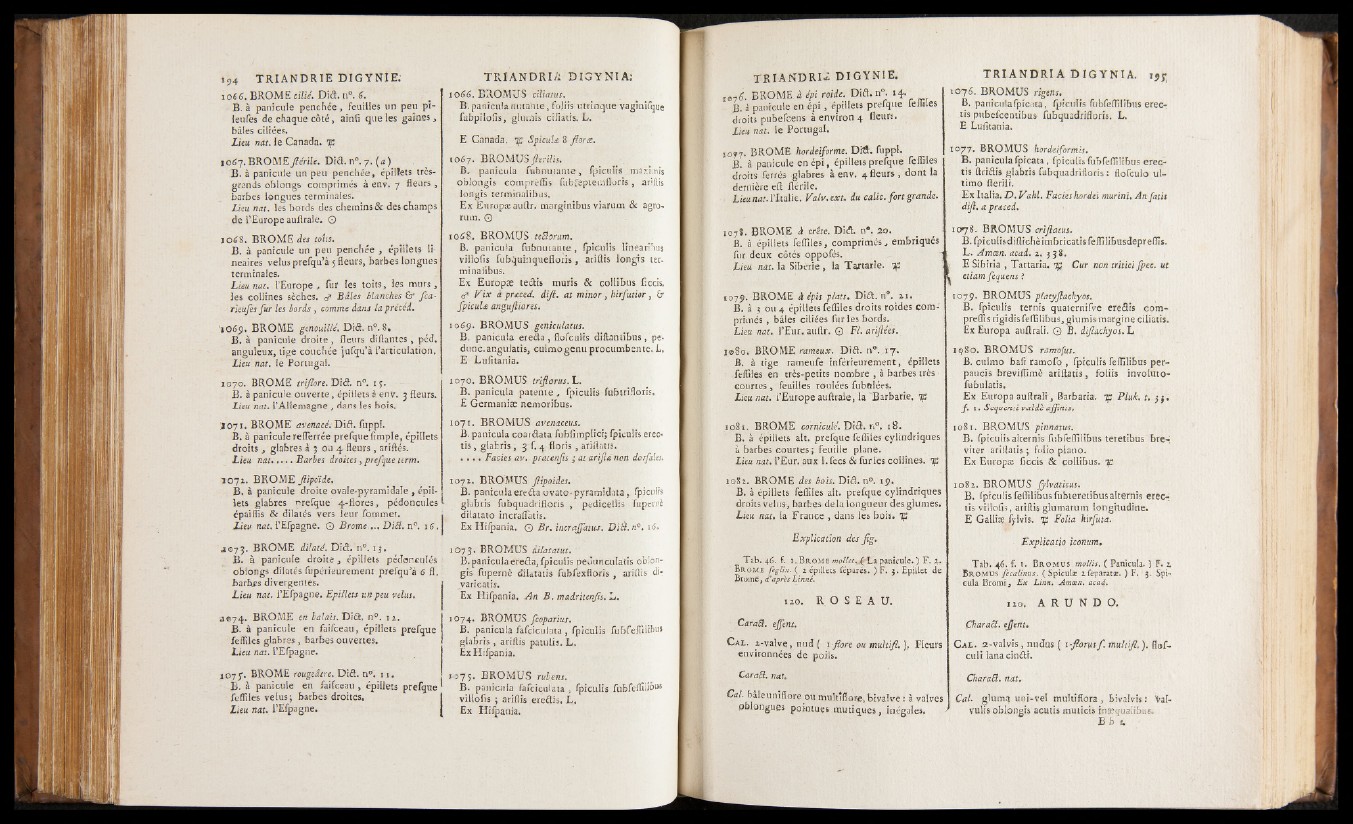 194 TRIANDRIE DIGYNIE.
1066. BROME cilié. Dict. n°. 6.
B. à panicule penchée, feuilles un peu pi-
leuſes de chaque côté, ainſi que les gaînes,
bâles ciliées.
Lieu nat. le Canada. ♃
1067. BROME ſtérile. Dict. n°. 7. (a)
B. à panicule un peu penchée, épillets très-
grands oblongs comprimés à env. 7 fleurs,
barbes longues terminales.
Lieu nat. les bords des chemins & des champs
de l'Europe auſtrale. ☉
1068. BROME des toits.
B. à panicule un peu penchée, épillets li-
neaires velus preſqu'à 5 fleurs, barbes longues
terminales.
Lieu nat. l'Europe, ſur les toits, les murs,
les collines sèches. ♂ Bâles blanches & ſca-
rieuſes ſur les bords, comme dans la précéd.
1069. BROME genouillé. Dict. n°. 8.
B. à panicule droite, fleurs diſtantes, péd.
anguleux, tige couchée juſqu'à l'articulation.
Lieu nat. le Portugal.
1070. BROME triflore. Dict. n°. 15.
B. à panicule ouverte, épillets à env. 3 fleurs.
Lieu nat. l'Allemagne, dans les bois.
1071. BROME avenacé. Dict. ſuppl.
B. à panicule reſſerrée preſque ſimple, épillets
droits, glabres à 3 ou 4 fleurs, ariſtés.
Lieu nat..... Barbes droites, preſque term.
1072. BROME ſtipoïde.
B. à panicule droite ovale-pyramidale, épil-
lets glabres preſque 4-flores, pédoncules
épaiſſis & dilatés vers leur ſommet.
Lieu nat. l'Eſpagne. ☉ Brome ... Dict. n°. 16.
1073. BROME dilaté. Dict. n°. 13.
B. à panicule droite, épillets pédonculés
oblongs dilatés ſupérieurement preſqu'à 6 fl.
barbes divergentes.
Lieu nat. l'Eſpagne. Epillets un peu velus.
1074. BROME en balais. Dict. n°. 12.
B. à panicule en faiſceau, épillets preſque
ſeſſiles glabres, barbes ouvertes.
Lieu nat. l'Eſpagne.
1075. BROME rougeâtre. Dict. n°. 11.
B. à panicule en faiſceau, épillets preſque
ſeſſiles velus; barbes droites.
Lieu nat. l'Eſpagne.
TRIANDRIA DIGYNIA.
1066. BROMUS ciliatus.
B. panicula nutante, foliis utrinque vaginiſque
ſubpiloſis, glumis ciliatis. L.
E Canada. ♃ Spiculæ 8 floræ.
1067. BROMUS ſterilis.
B. panicula ſubnutante, ſpiculis maximis
oblongis compreſſis ſubſeptemfloris, ariſtis
longis terminalibus.
Ex Europæ auſtr. marginibus viarum & agro-
rum. ☉
1068. BROMUS tectorum.
B. panicula ſubnutante, ſpiculis linearibus
villoſis ſubquinquefloris, ariſtis longis ter-
minalibus.
Ex Europæ tectis muris & collibus ſiccis.
♂ Vix a præced. diſt. at minor, hirſutior, &
ſpiculæ anguſtiores.
1069. BROMUS geniculatus.
B. panicula erecta, floſculis diſtantibus, pe-
dunc. angulatis, culmo genu procumbente. L.
E Luſitania.
1070. BROMUS triflorus. L.
B. panicula patente, ſpiculis ſubtrifloris.
E Germaniæ nemoribus.
1071. BROMUS avenaceus.
B. panicula coarctata ſubſimplici; ſpiculis erec-
tis, glabris, 3 ſ. 4 floris, ariſtatis.
.... Facies av. pratenſis; at ariſtæ non dorſales.
1072. BROMUS ſtipoides.
B. panicula erecta ovato-pyramidata, ſpiculis
glabris ſubquadrifloris, pedicellis ſuperne
dilatato incraſſatis.
Ex Hiſpania. ☉ Br. incraſſatus. Dict. n°. 16.
1073. BROMUS dilatatus.
B. panicula erecta, ſpiculis pedunculatis oblon-
gis ſupernè dilatatis ſubſexfloris, ariſtis di-
varicatis.
Ex Hiſpania. An B. madritenſis. L.
1074. BROMUS ſcoparius.
B. panicula faſciculata, ſpiculis ſubſeſſilibus
glabris, ariſtis patulis. L.
Ex Hiſpania.
1075. BROMUS rubens.
B. panicula faſciculata, ſpiculis ſubſeſſilibus
villoſis; ariſtis erectis. L.
Ex Hiſpania.
TRIANDRIE DIGYNIE.
1076. BROME à épi roide. Dict. n°. 14.
B. à panicule en épi, épillets preſque ſeſſiles
droits pubeſcens à environ 4 fleurs.
Lieu nat. le Portugal.
1077. BROME hordeiforme. Dict. ſuppl.
B. à panicule en épi, épillets preſque ſeſſiles
droits ſerrés glabres à env. 4 fleurs, dont la
dernière eſt ſtérile.
Lieu nat. l'Italie. Valv. ext. du calic. fort grande.
1078. BROME à crête. Dict. n°. 20.
B. à épillets ſeſſiles, comprimés, embriqués
ſur deux côtés oppoſés.
Lieu nat. la Siberie, la Tartarie. ♃
1079. BROME à épis plats. Dict. n°. 21.
B. à 3 ou 4 épillets ſeſſiles droits roides com-
primés, bâles ciliées ſur les bords.
Lieu nat. l'Eur. auſtr. ☉ Fl. ariſtées.
1080. BROME rameux. Dict. n°. 17.
B. à tige rameuſe inférieurement, épillets
ſeſſiles en très-petits nombre, à barbes très
courtes, feuilles roulées ſubulées.
Lieu nat. l'Europe auſtrale, la Barbarie. ♃
1081. BROME corniculé. Dict. n°. 18.
B. à épillets alt. preſque ſeſſiles cylindriques
à barbes courtes; feuille plane.
Lieu nat. l'Eur. aux l. ſecs & ſur les collines. ♃
1082. BROME des bois. Dict. n°. 19.
B. à épillets ſeſſiles alt. preſque cylindriques
droits velus, barbes de la longueur des glumes.
Lieu nat. la France, dans les bois. ♃
Explication des fig.
Tab. 46. f. 1. BROME mollet. (La panicule.) F. 2.
BROME ſeglin. (2 épillets ſéparés.) F. 3. Epillet de
Brome, d'après Linné.
120. ROSEAU.
Caract. eſſent.
CAL. 2-valve, nud (1 flore ou multifl.). Fleurs
environnées de poils.
Caract. nat.
Cal. bâle uniflore ou multiflore, bivalve: à valves
oblongues pointues mutiques, inégales.
TRIANDRIA DIGYNIA. 195
1076. BROMUS rigens.
B. panicula ſpicata, ſpiculis ſubſeſſilibus erec-
tis pubeſcentibus ſubquadrifloris. L.
E Luſitania.
1077. BROMUS hordeiformis.
B. panicula ſpicata, ſpiculis ſubſeſſilibus erec-
tis ſtrictis glabris ſubquadrifloris: floſculo ul-
timo ſterili.
Ex Italia. D. Vahl. Facies hordei murini. An ſatis
diſt. a præced.
1078. BROMUS criſtatus.
B. ſpiculis diſtichè imbricatis ſeſſilibus depreſſis.
L. Amœn. acad. 2. 338.
E Sibiria, Tartaria. ♃ Cur non tritici ſpec. ut
etiam ſequens?
1079. BROMUS platyſtachyos.
B. ſpiculis ternis quaterniſve erectis com-
preſſis rigidis ſeſſilibus, glumis margine ciliatis.
Ex Europa auſtrali. ☉ B. diſtachyos. L
1080. BROMUS ramoſus.
B. culmo baſi ramoſo, ſpiculis ſeſſilibus per-
paucis breviſſimè ariſtatis, foliis involuto-
ſubulatis.
Ex Europa auſtrali, Barbaria. ♃ Pluk. t. 33.
f. 1. Sequenti valdè affinis.
1081. BROMUS pinnatus.
B. ſpiculis alternis ſubſeſſilibus teretibus bre-
viter ariſtatis; folio plano.
Ex Europæ ſiccis & collibus. ♃
1082. BROMUS ſylvaticus.
B. ſpiculis ſeſſilibus ſubteretibus alternis erec-
tis villoſis, ariſtis glumarum longitudine.
E Galliæ ſylvis. ♃ Folia hirſuta.
Explicatio iconum.
Tab. 46. f. 1. BROMUS mollis. (Panicula.) F. 2
BROMUS ſecalinus. (Spiculæ 2 ſeparatæ.) F. 3. Spi-
cula Bromi, Ex Linn. Amœn. acad.
120. ARUNDO.
Charact. eſſent.
CAL. 2-valvis, nudus (1-florus ſ. multifl.). floſ-
culi lana cincti.
Charact. nat.
Cal. gluma uni-vel multiflora, bivalvis: val-
vulis oblongis acutis muticis inæqualibus.
B b 2